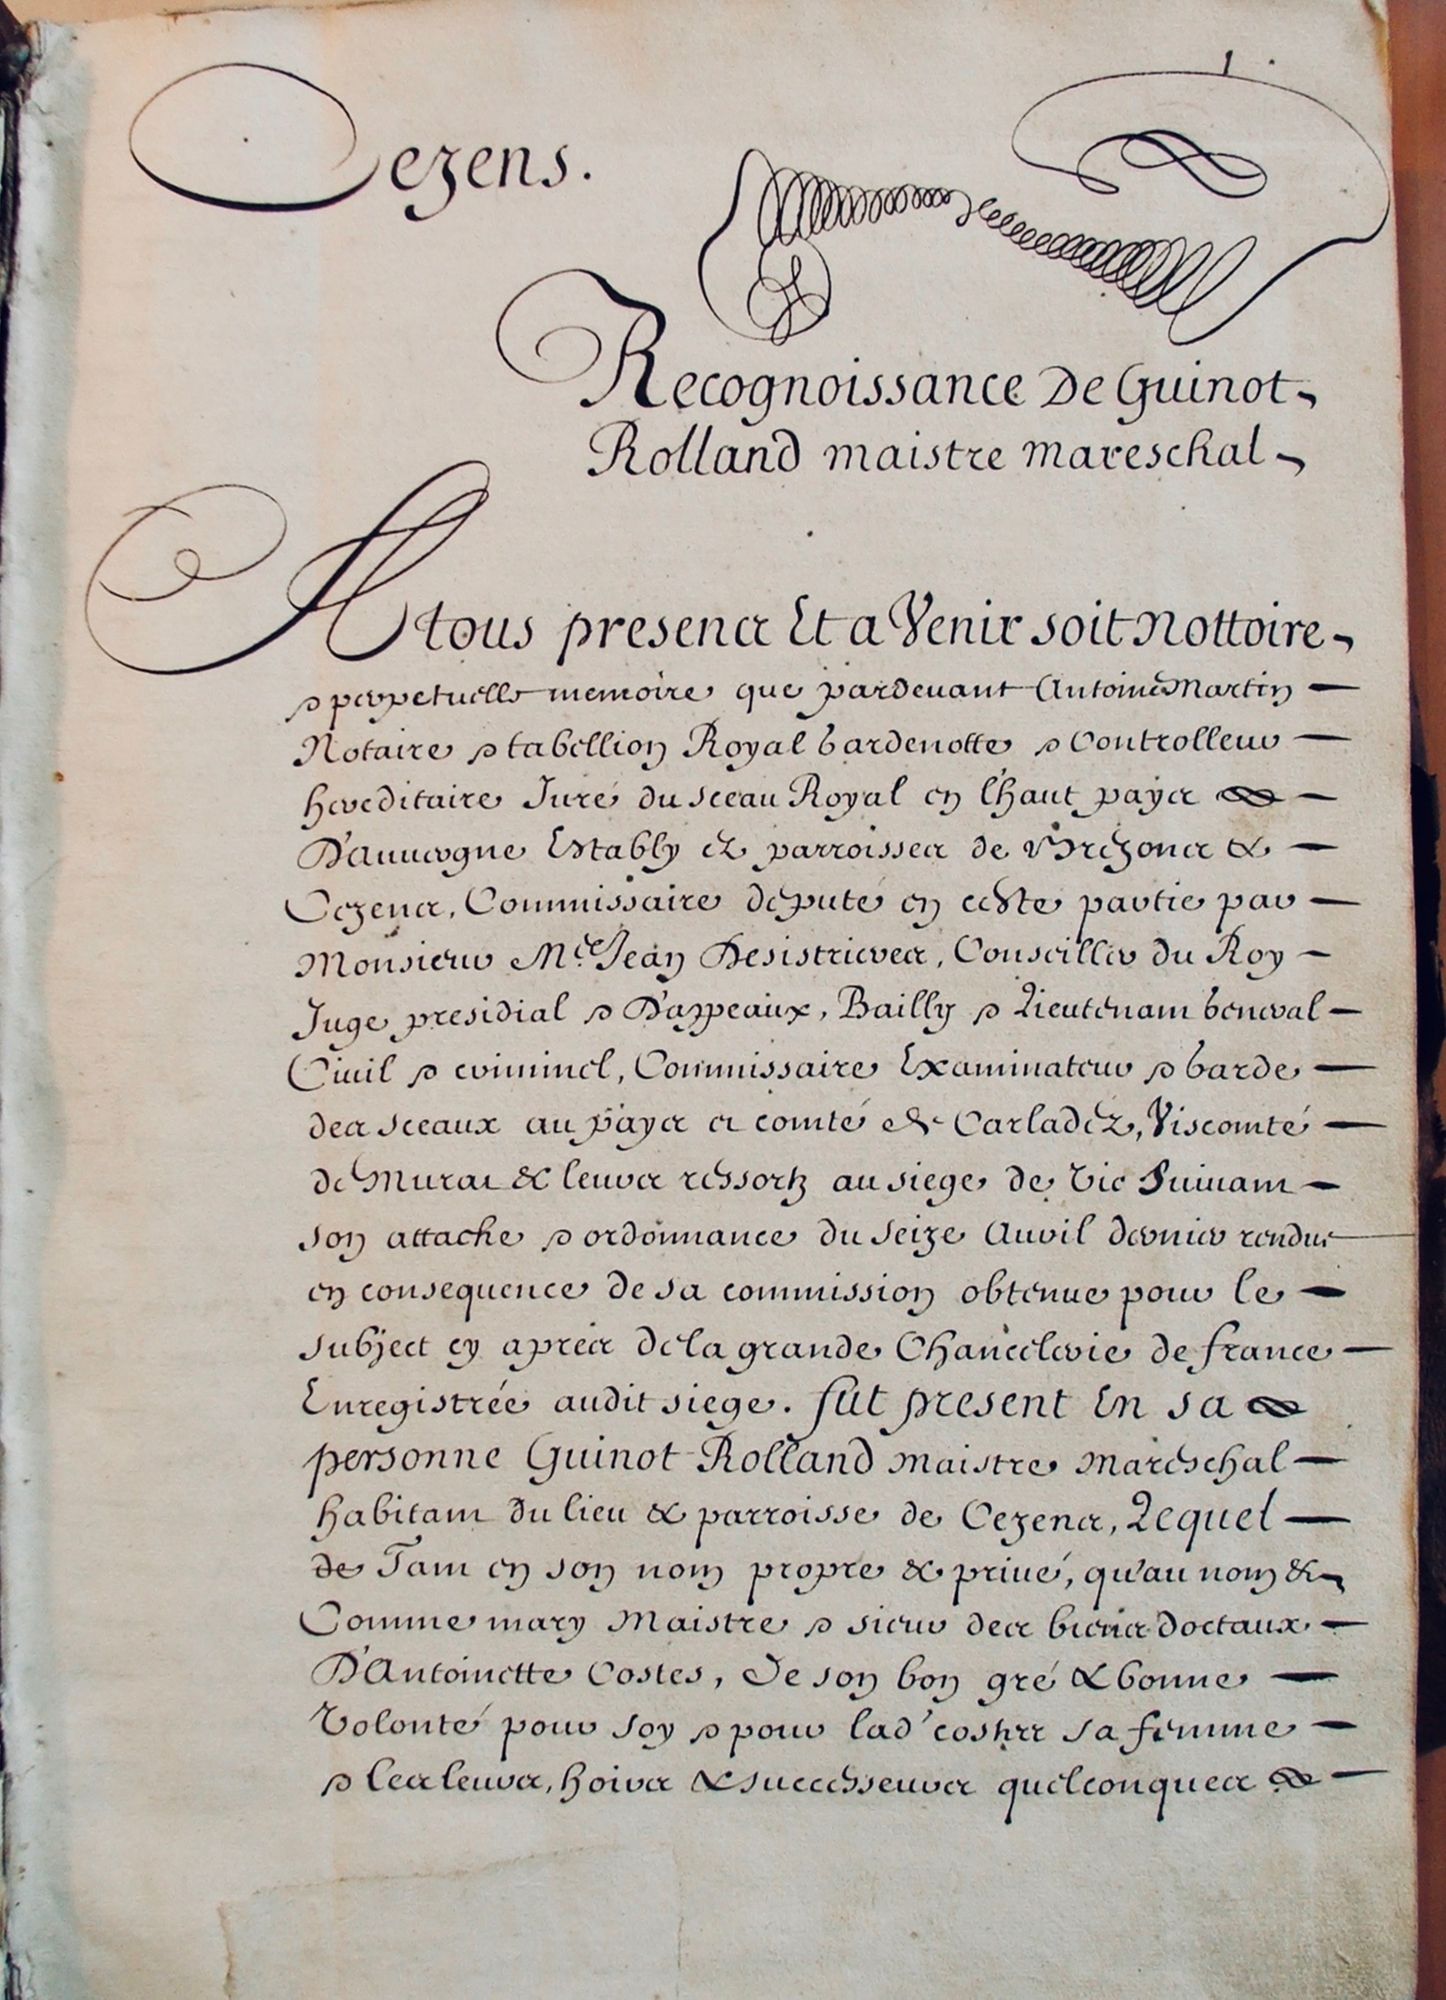 1.
Cezens.
Recognoissance De Guinot
Rolland maistre mareschal
A tous presens Et a Venir soit Nottoire
& perpetuelle memoire que pardevant Antoine Martin
Notaire & tabellion Royal Gardenotte & Controlleur
hereditaire Juré du sceau Royal en l'haut payis
D'auuergne Estably ez parroisses de Brezons &
Cezens, Commissaire deputé en ceste partie par
Monsieur Me Jean Desistrieres, Conseiller du Roy
Juge presidial & D'appeaux, Bailly & Lieutenant General
Ciuil & criminel, Commissaire Examinateur & Garde
des sceaux au payis et comté de Carladéz, Viscomté
de Murat & leurs ressortz au siege de Vic Suiuant
son attache & ordonnance du seize Auril dernier rendue
en consequence de sa commission obtenue pour le
subject cy apres de la grande Chancelerie de france
Enregistrée audit siege. fut present En sa
personne Guinot Rolland Maistre Mareschal
habitant du lieu & parroisse de Cezens, Lequel
de Tant en son nom propre & priué, qu'au nom &
Comme mary Maistre & sieur des biens doctaux
D'Antoinette Costes, De son bon gré & bonne
Volonté pour soy & pour lad' costes sa femme
& les leurs, hoirs & successeurs quelconques